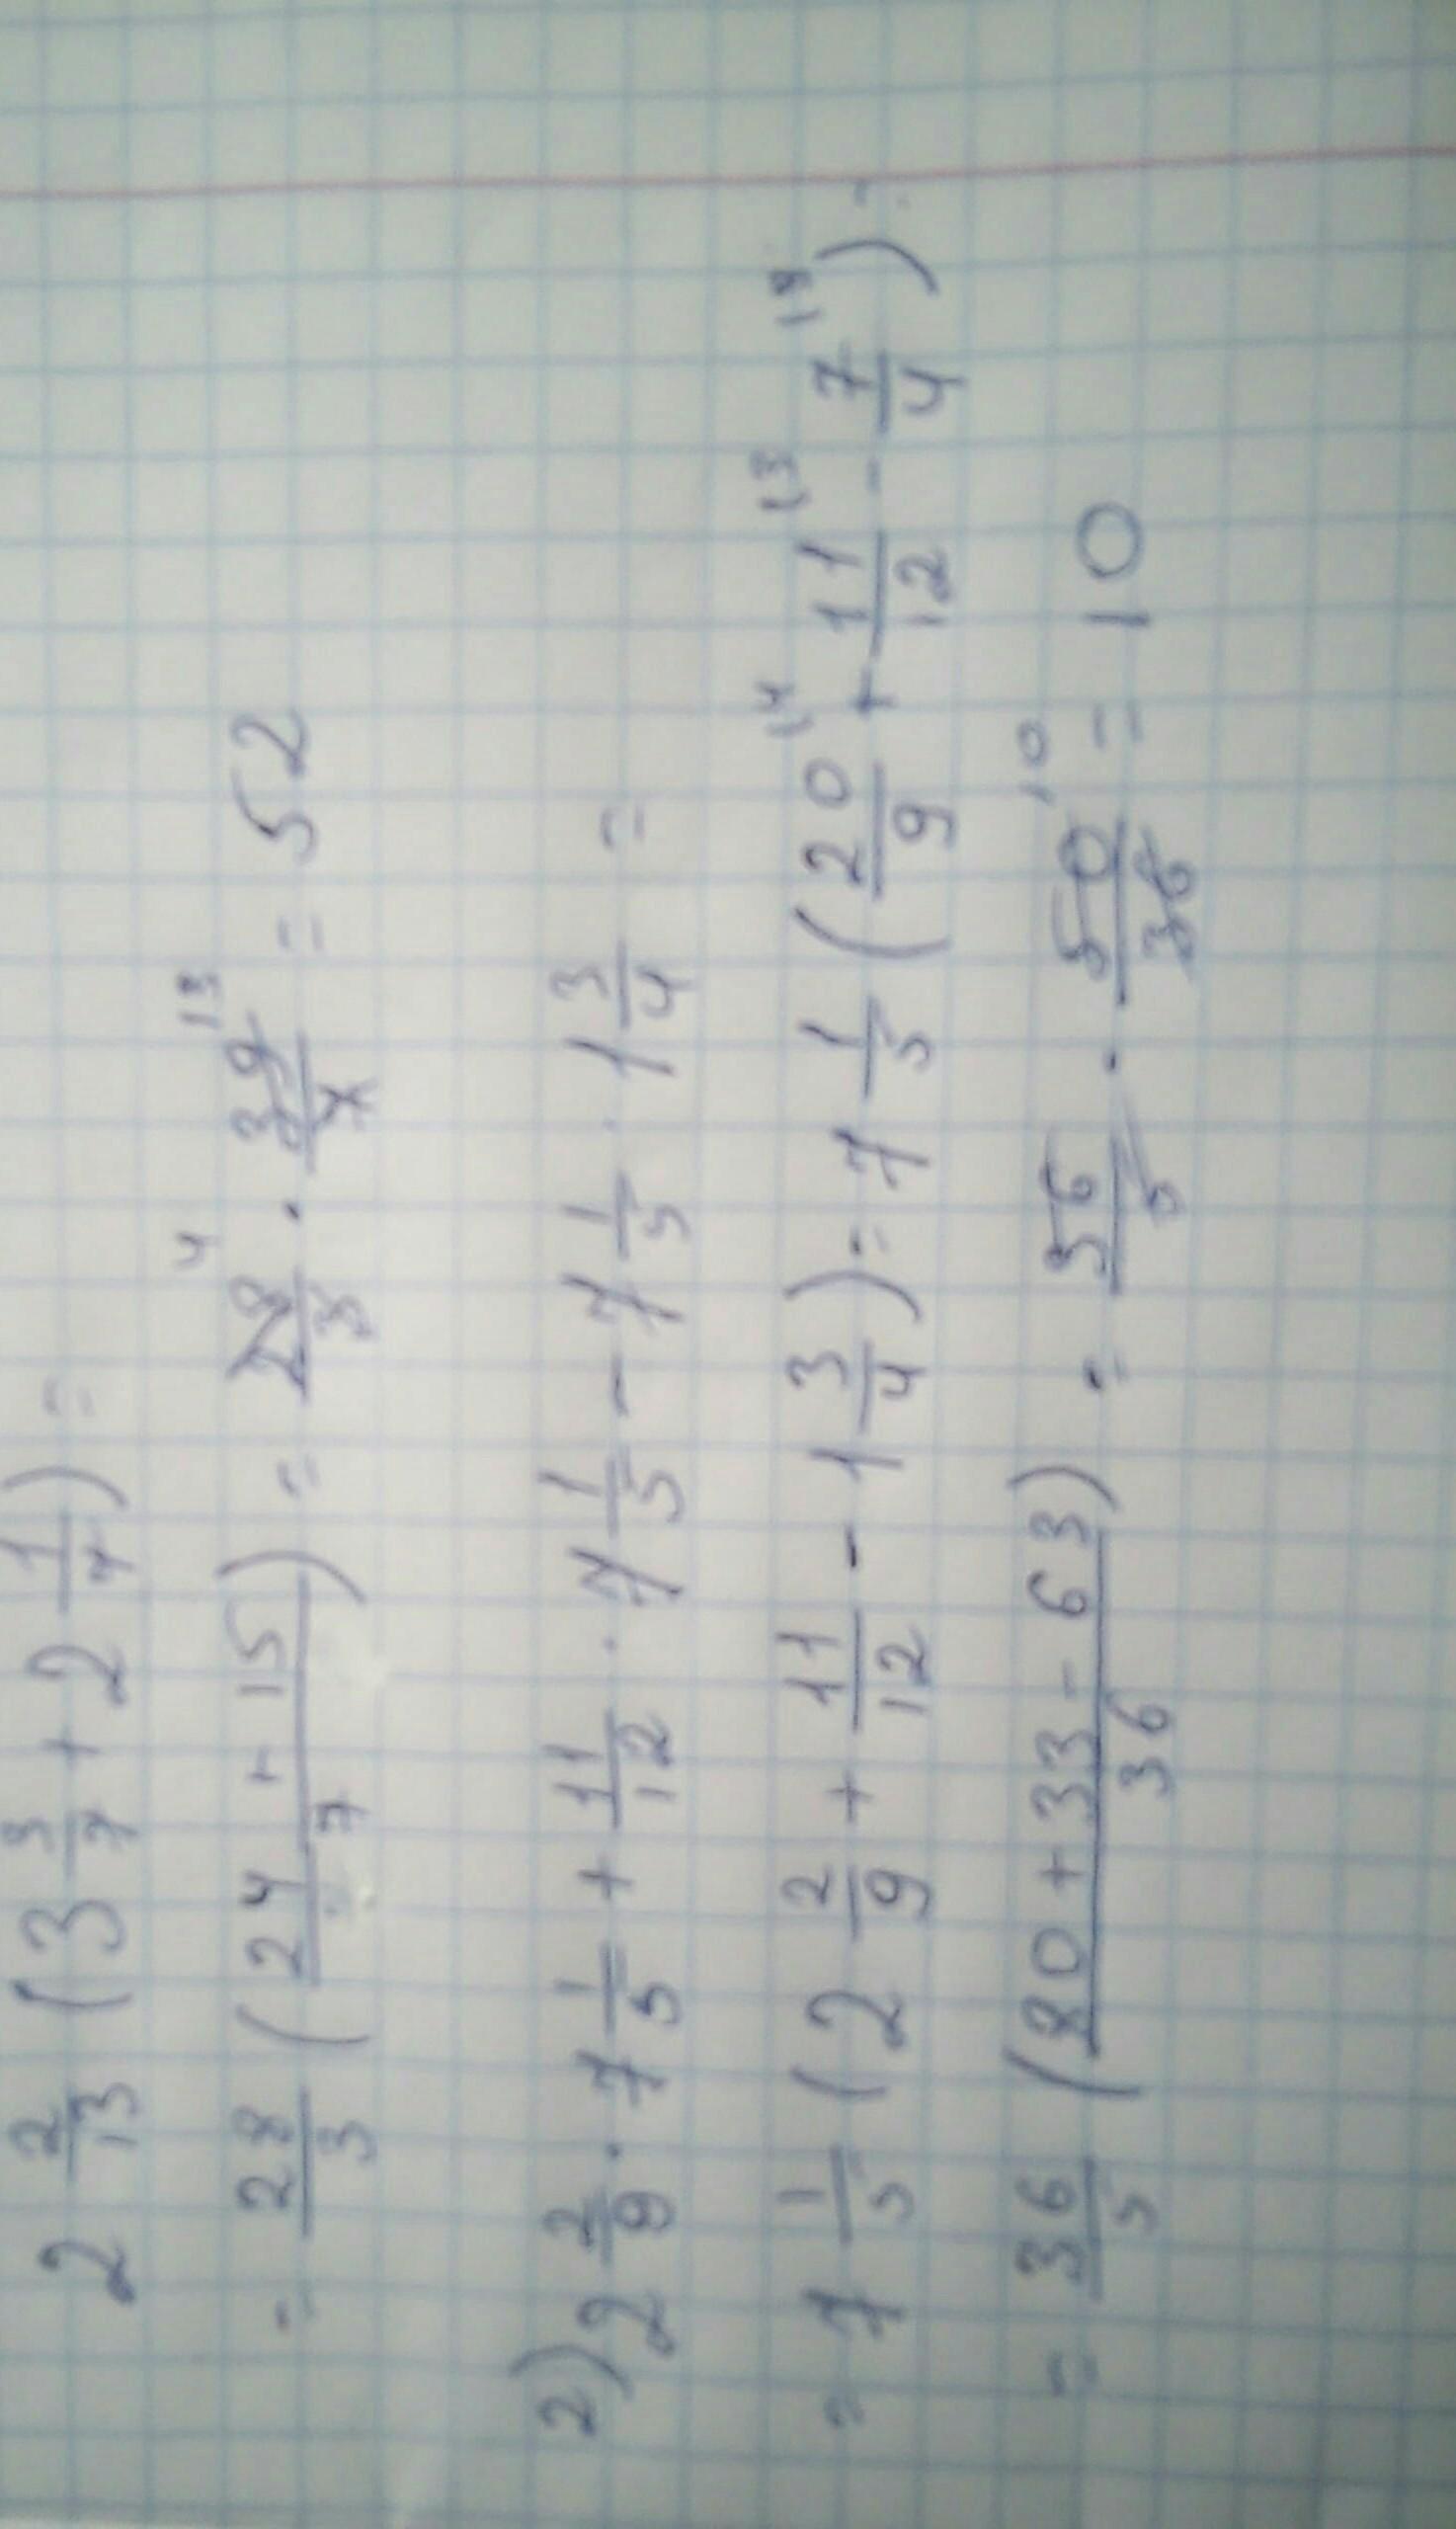 2 2/13 (3 3/7 + 2 1/7) =
= 28/3 (24 + 15 / 7) = 28/3 ⁴ · 39/7 ¹³ = 52
2) 2 2/9 · 7 1/5 + 11/12 · 7 1/5 - 7 1/5 · 1 3/4 =
= 7 1/5 (2 2/9 + 11/12 - 1 3/4) = 7 1/5 (20/9 ¹⁴ + 11/12 ¹³ - 7/4 ¹⁹) =
= 36/5 (80 + 33 - 63 / 36) = 36/5 · 50/36 ¹⁰ = 10